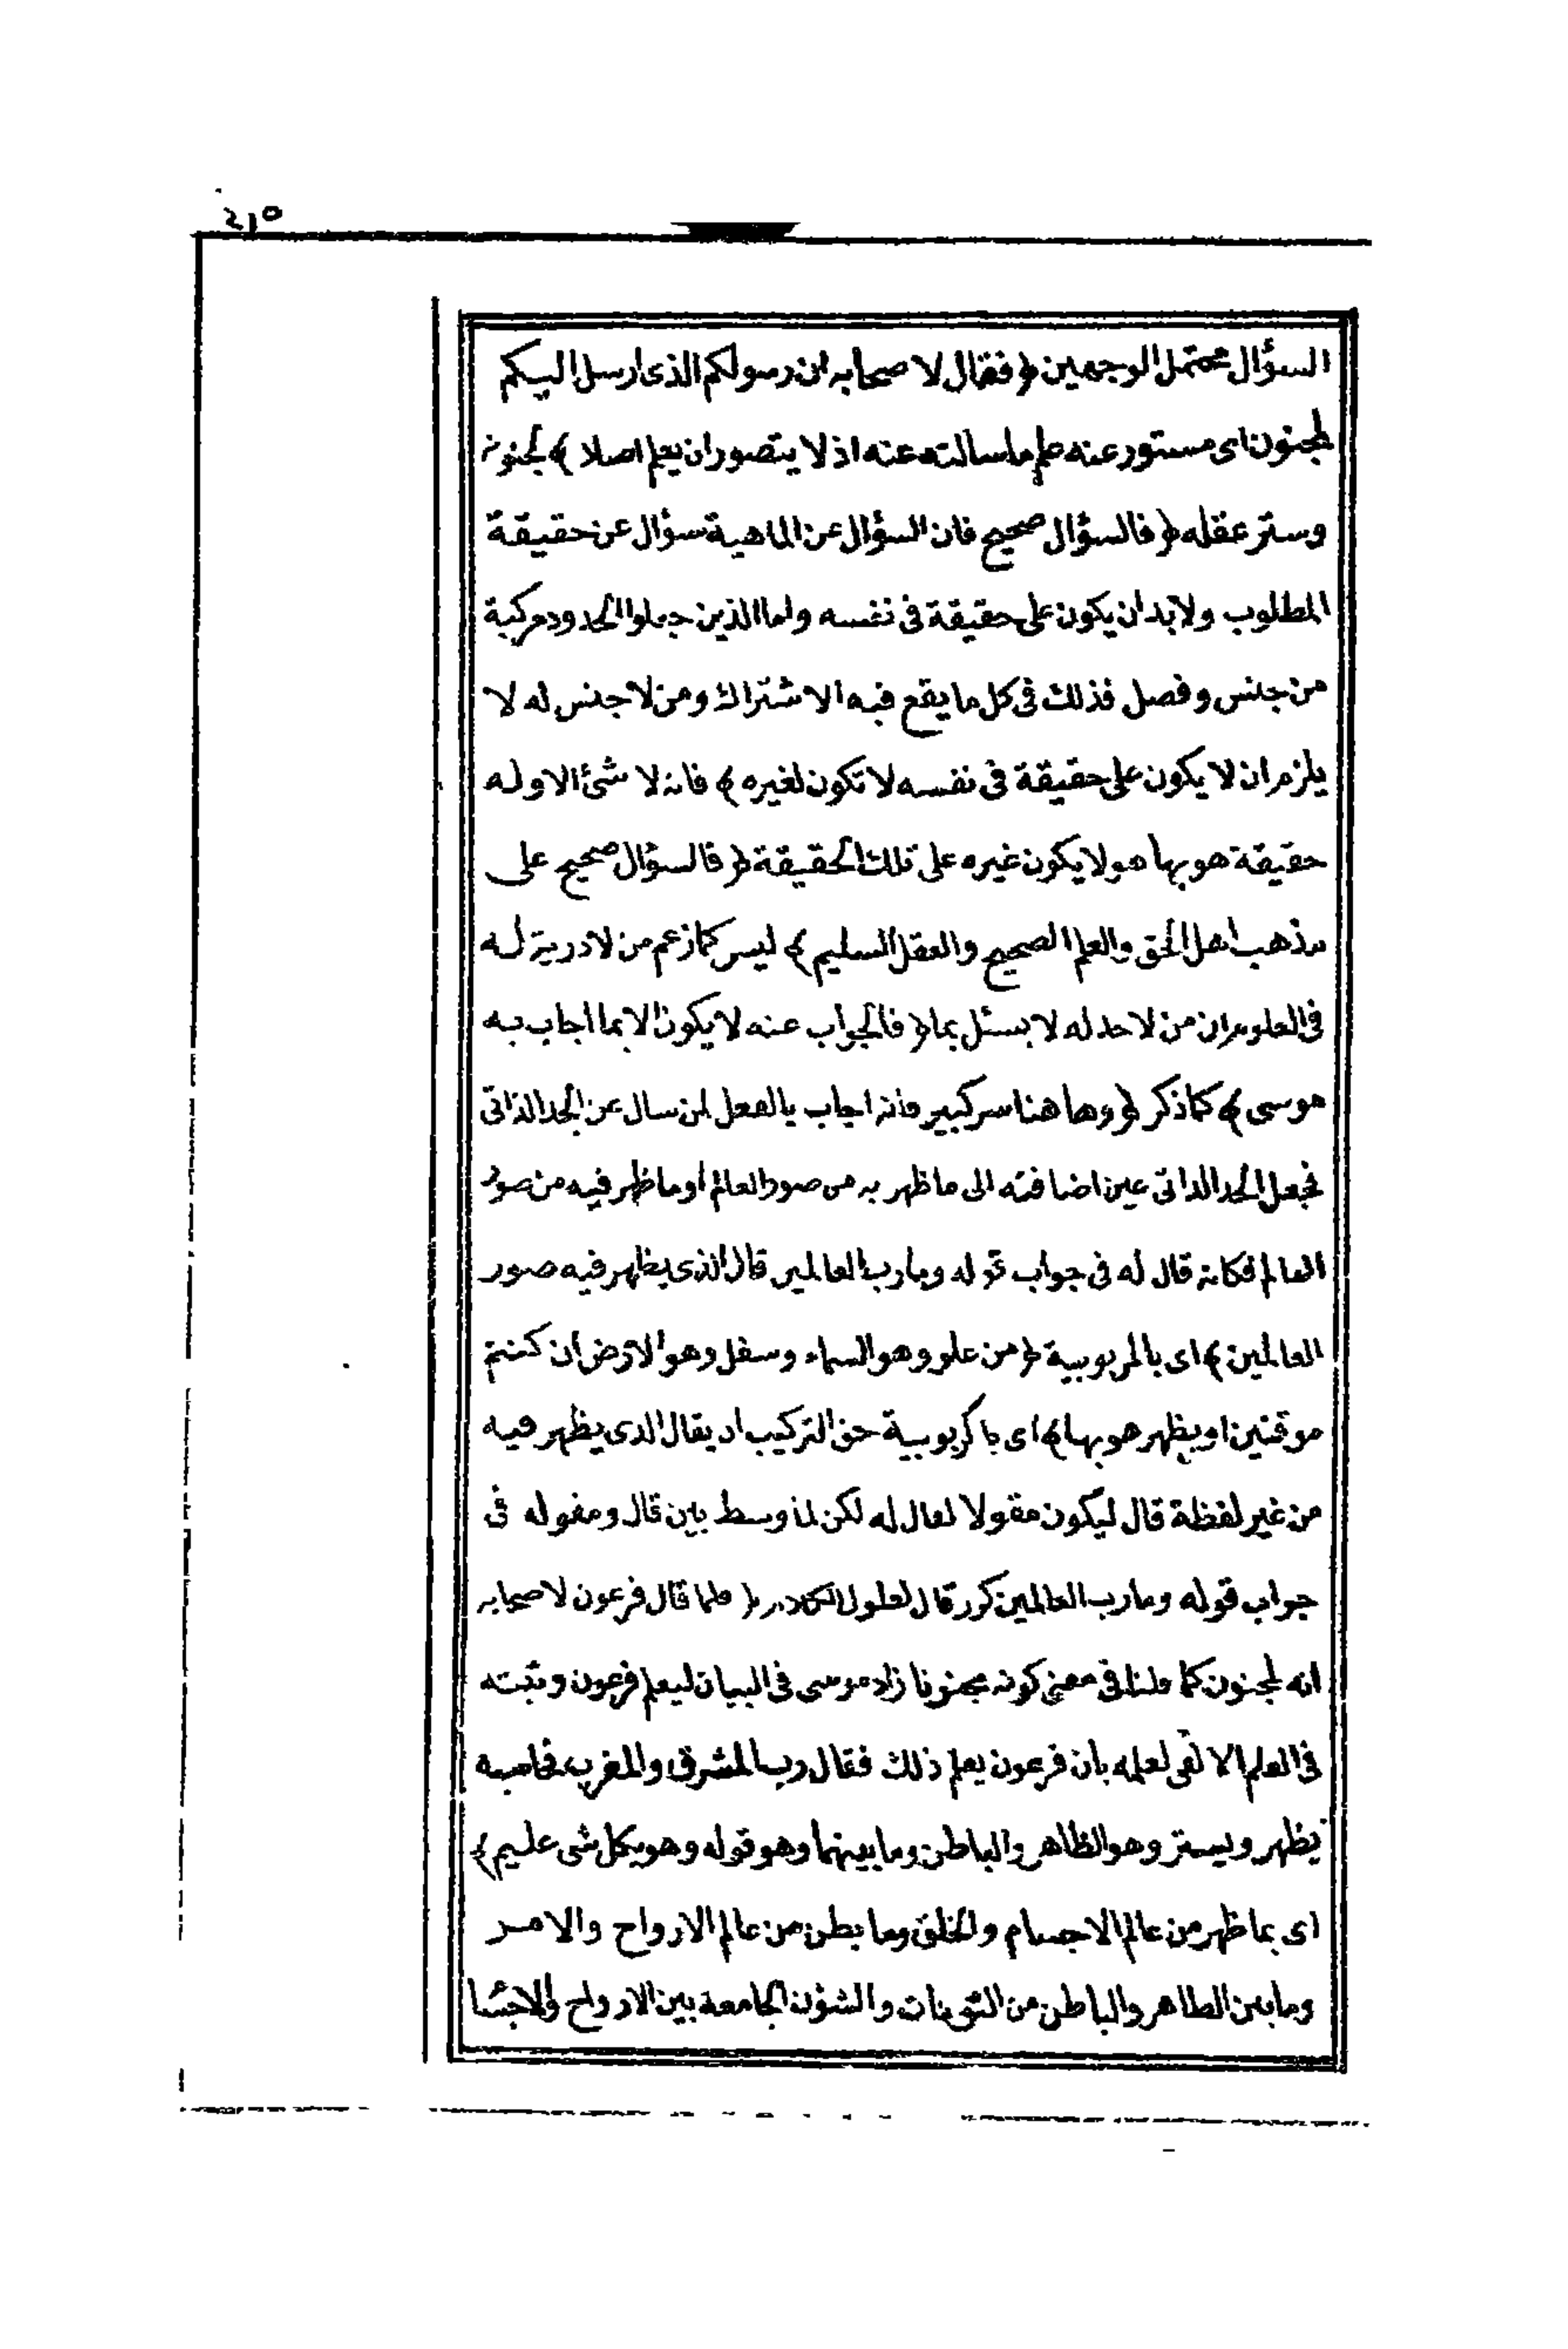 ٤١٥
السؤال محتمل الوجهين ﴿ فقال لاصحابه ان رسولكم الذى ارسل اليكم
لمجنون اى مستور عنه علم ما سالته عنه اذ لا يتصور ان يعلم اصلا ﴾ لجنونه
وستر عقله ﴿ فالسؤال صحيح فان السؤال عن الماهية سؤال عن حقيقة
المطلوب ولا بد ان يكون على حقيقة فى نفسه واما الذين جعلوا الحدود مركبة
من جنس وفصل فذلك فى كل ما يقع فيه الاشتراك ومن لا جنس له لا
يلزم ان لا يكون على حقيقة فى نفسه لا تكون لغيره ﴾ فانه لا شئ الا وله
حقيقة هو بها هو لا يكون غيره على تلك الحقيقة ﴿ فالسؤال صحيح على
مذهب اهل الحق والعلم الصحيح والعقل السليم ﴾ ليس كما زعم من لا درية له
فى العلوم ان من لا حد له لا يسئل بما ﴿ فالجواب عنه لا يكون الا بما اجاب به
موسى ﴾ كما ذكر ﴿ وها هنا سر كبير فانه اجاب بالفعل لمن سال عن الحد الذاتى
فجعل الحد الذاتى عين اضافته الى ما ظهر به من صور العالم او ما ظهر فيه من صور
العالم فكانه قال له فى جواب قوله وما رب العالمين قال الذى يظهر فيه صور
العالمين ﴾ اى بالمربوبية ﴿ من علو وهو السماء وسفل وهو الارض ان كنتم
موقنين او يظهر هو بها ﴾ اى بالربوبية حق التركيب ان يقال الذى يظهر فيه
من غير لفظة قال ليكون مقولا لقال له لكن لما وسط بين قال ومقوله فى
جواب قوله وما رب العالمين كرر قال لطول الكلام ﴿ فلما قال فرعون لاصحابه
انه لمجنون كما قلنا فى معنى كونه مجنونا زاد موسى فى البيان ليعلم فرعون رتبته
فى العلم الالهى لعلمه بان فرعون يعلم ذلك فقال رب المشرق والمغرب فجاء بما
يظهر ويستر وهو الظاهر والباطن وما بينهما وهو قوله وهو بكل شى عليم ﴾
اى بما ظهر من عالم الاجسام والخلق وما بطن من عالم الارواح والامر
وما بين الظاهر والباطن من التعينات والشؤن الجامعة بين الارواح والاجسا